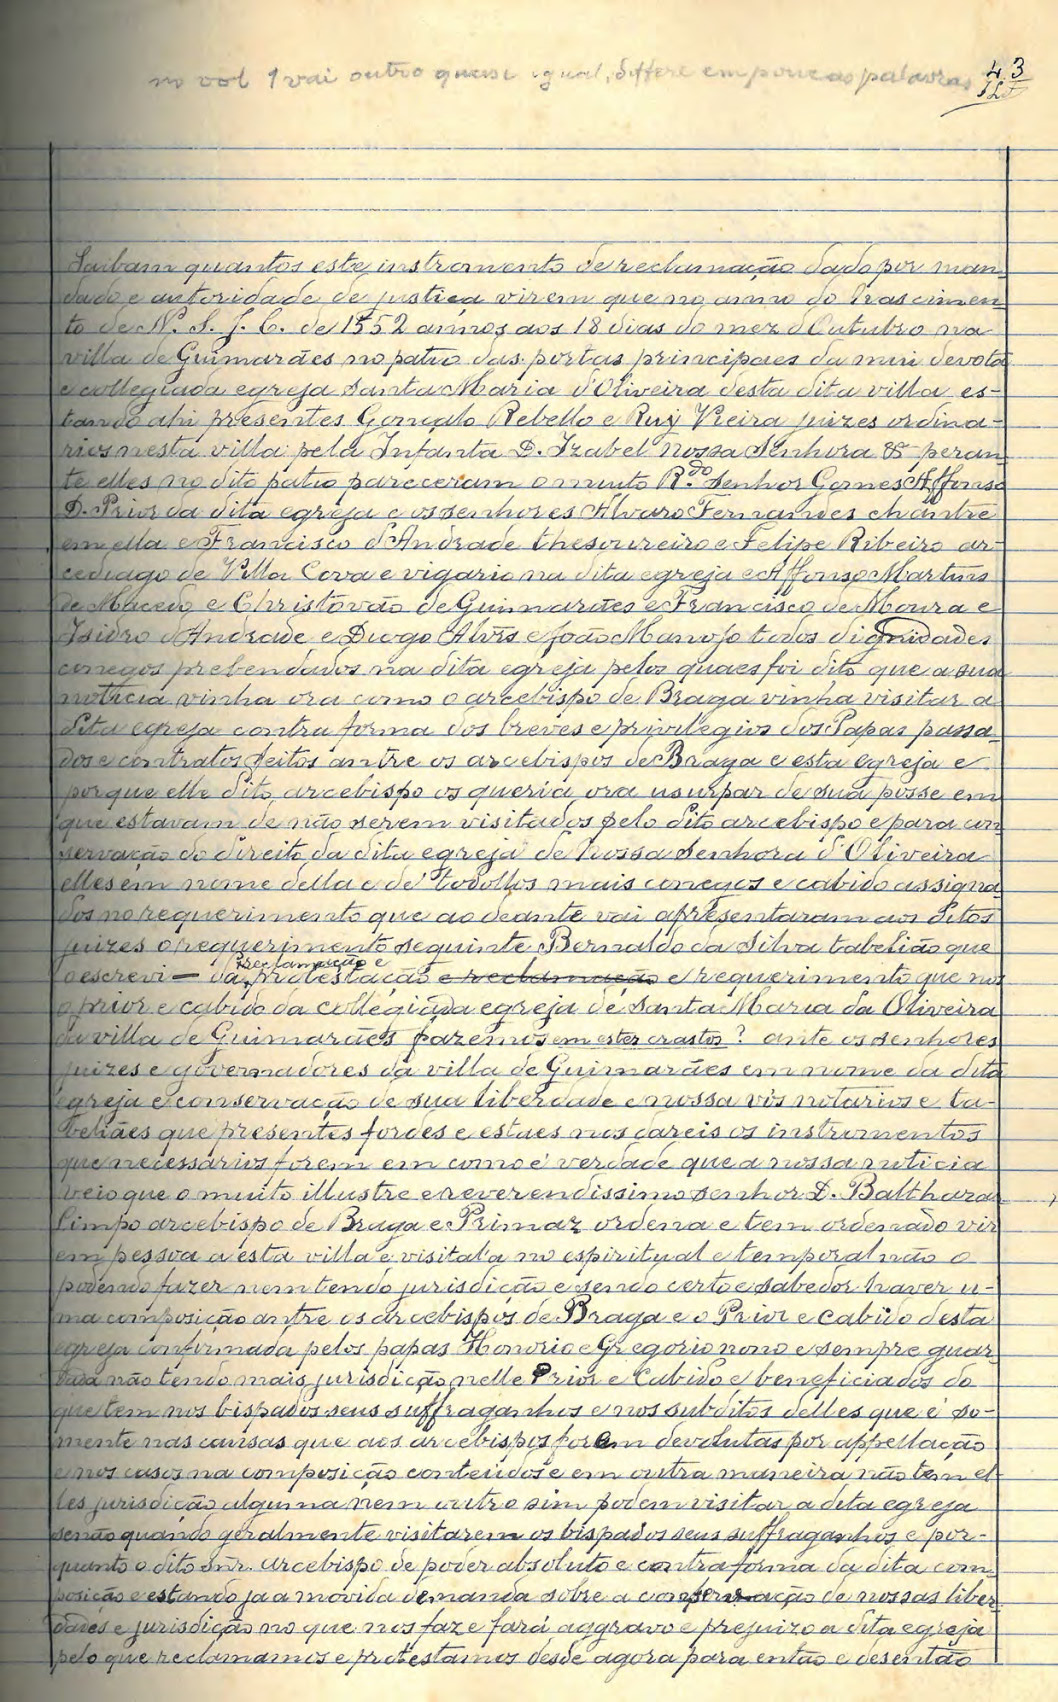 no vol 1 vai outro quasi igual, differe em poucas palavras
43
Saibam quantos este instromento de reclamação dado por man-
dado e autoridade de justiça virem que no anno do Nascimen-
to de N. S. J. C. de 1552 annos aos 18 dias do mez d'Outubro na
villa de Guimarães no patio das portas principaes da mui devota
e collegiada egreja Santa Maria d'Oliveira desta dita villa es-
tando ahi presentes Gonçalo Rebello e Ruy Vieira juizes ordina-
rios nesta villa pela Infanta D. Izabel Nossa Senhora & peran-
te elles no dito patio pareceram o muito R.do Senhor Gomes Affonso
D. Prior da dita egreja e os senhores Alvaro Fernandes chantre
em ella e Francisco d'Andrade thesoureiro e Felipe Ribeiro ar-
cediago de Villa Cova e vigario na dita egreja e Affonso Martins
de Macedo e Christovão de Guimarães e Francisco de Moura e
Isidro d'Andrade e Diogo Alvrs e João Manojo todos dignidades
conegos prebendados na dita egreja pelos quaes foi dito que a sua
noticia vinha ora como o arcebispo de Braga vinha visitar a
dita egreja contra forma dos breves e privilegios dos Papas passa-
dos e contratos feitos antre os arcebispos de Braga e esta egreja e
porque elle dito arcebispo os queria ora usurpar de sua posse em
que estavam de não serem visitados pelo dito arcebispo e para con
servação do direito da dita egreja de Nossa Senhora d'Oliveira
elles em nome della e de todollos mais conegos e cabido assigna-
dos no requerimento que ao deante vai apresentaram aos ditos
juizes o requerimento seguinte Bernaldo da Silva tabelião que
reclamação e
o escrevi — da protestação e reclamação e requerimento que nos
o prior e cabido da collegiada egreja de Santa Maria da Oliveira
da villa de Guimarães fazemos em estes crastos? ante os senhores
juizes e governadores da villa de Guimarães em nome da dita
egreja e conservação de sua liberdade e nossa vós notarios e ta-
beliães que presentes fordes e estaes nos dareis os instromentos
que necessarios forem em como é verdade que a nossa noticia
veio que o muito illustre e reverendissimo senhor D. Balthazar
Limpo arcebispo de Braga e Primaz ordena e tem ordenado vir
em pessoa a esta villa e visital'a no espiritual e temporal não o
podendo fazer nem tendo jurisdicção e sendo certo e sabedor haver u-
ma composição antre os arcebispos de Braga e o Prior e Cabido desta
egreja confirmada pelos papas Honorio e Gregorio nono e sempre guar
dada não tendo mais jurisdicção nelle Prior e Cabido e beneficiados do
que tem nos bispados seus suffraganhos e nos subditos delles que é so-
mente nas causas que aos arcebispos forem devolutas por appellação
e nos casos na composição conteudos e em outra maneira não tem el-
les jurisdicção alguma nem outro sim podem visitar a dita egreja
senão quando geralmente visitarem os bispados seus suffraganhos e por-
quanto o dito snr. Arcebispo de poder absoluto e contra forma da dita com
posição e estando ja a movida demanda sobre a conservação de nossas liber
dades e jurisdicção no que nos faz e fará aggravo e prejuizo a dita egreja
pelo que reclamamos e protestamos desde agora para então e desentão